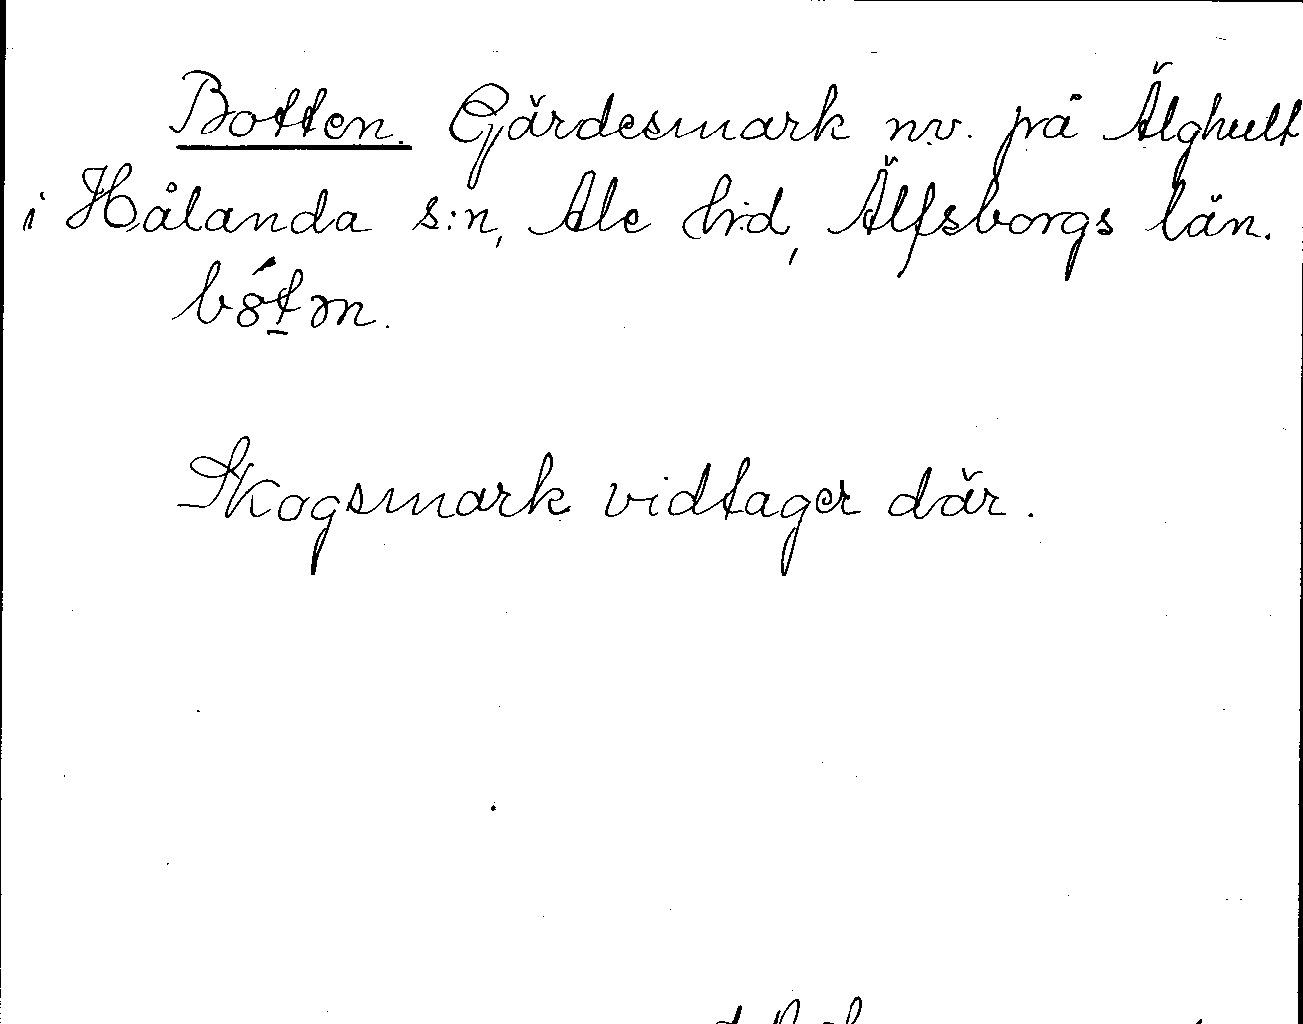 Botten. Gärdesmark nv. på Älghult
i Hålanda s:n, Ale h:d, Älfsborgs län.
bót̲ən.
Skogsmark vidtager där.